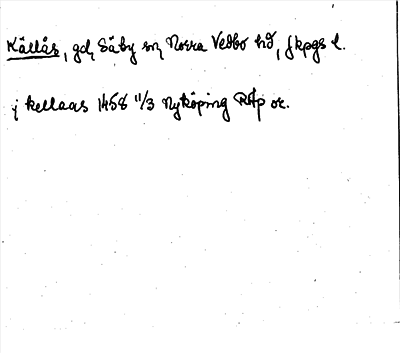 Källås, gd, Säby sn, Norra Vedbo hd, Jkpgs l.
j kellaas 1458 11/3 Nyköping RAp or.